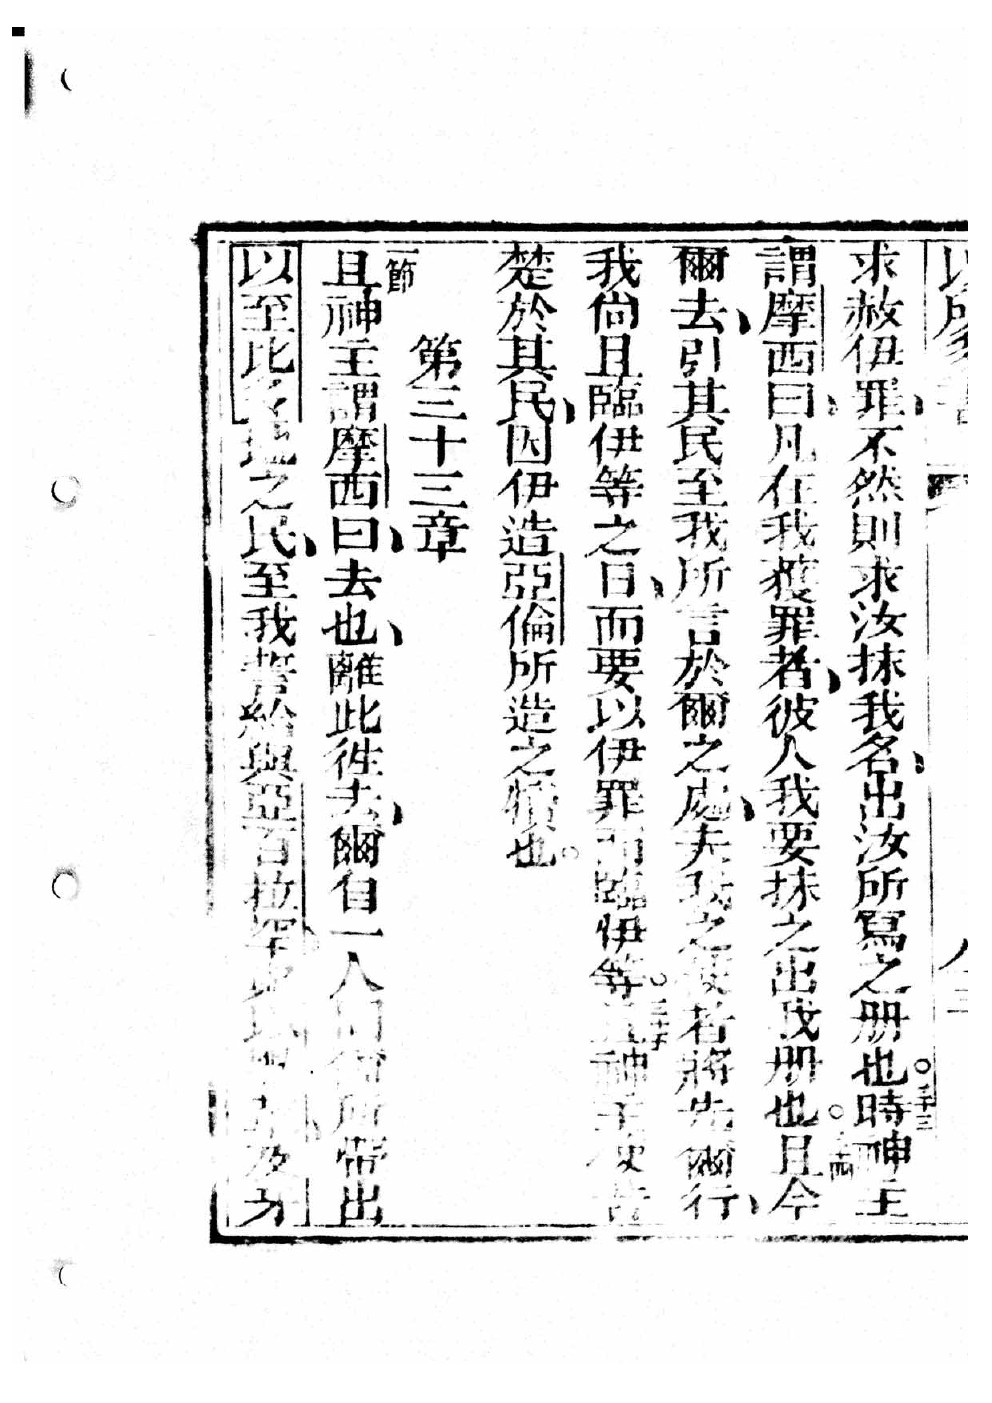 求赦伊罪、不然則求汝抹我名、出汝所寫之册也。三十三時神主
謂摩西曰、凡在我獲罪者、彼人我要抹之出我册也。且今
爾去、引其民至我所言於爾之處、夫我之使者將先爾行、
我尙且臨伊等之日、而要以伊罪而臨伊等。三十五且神主使苦
楚於其民、因伊造亞倫所造之犢也。
第三十三章
一節且神主謂摩西曰、去也、離此徃去、爾自一人同爾所帶出
以至比多地之民、至我誓給與亞百拉罕